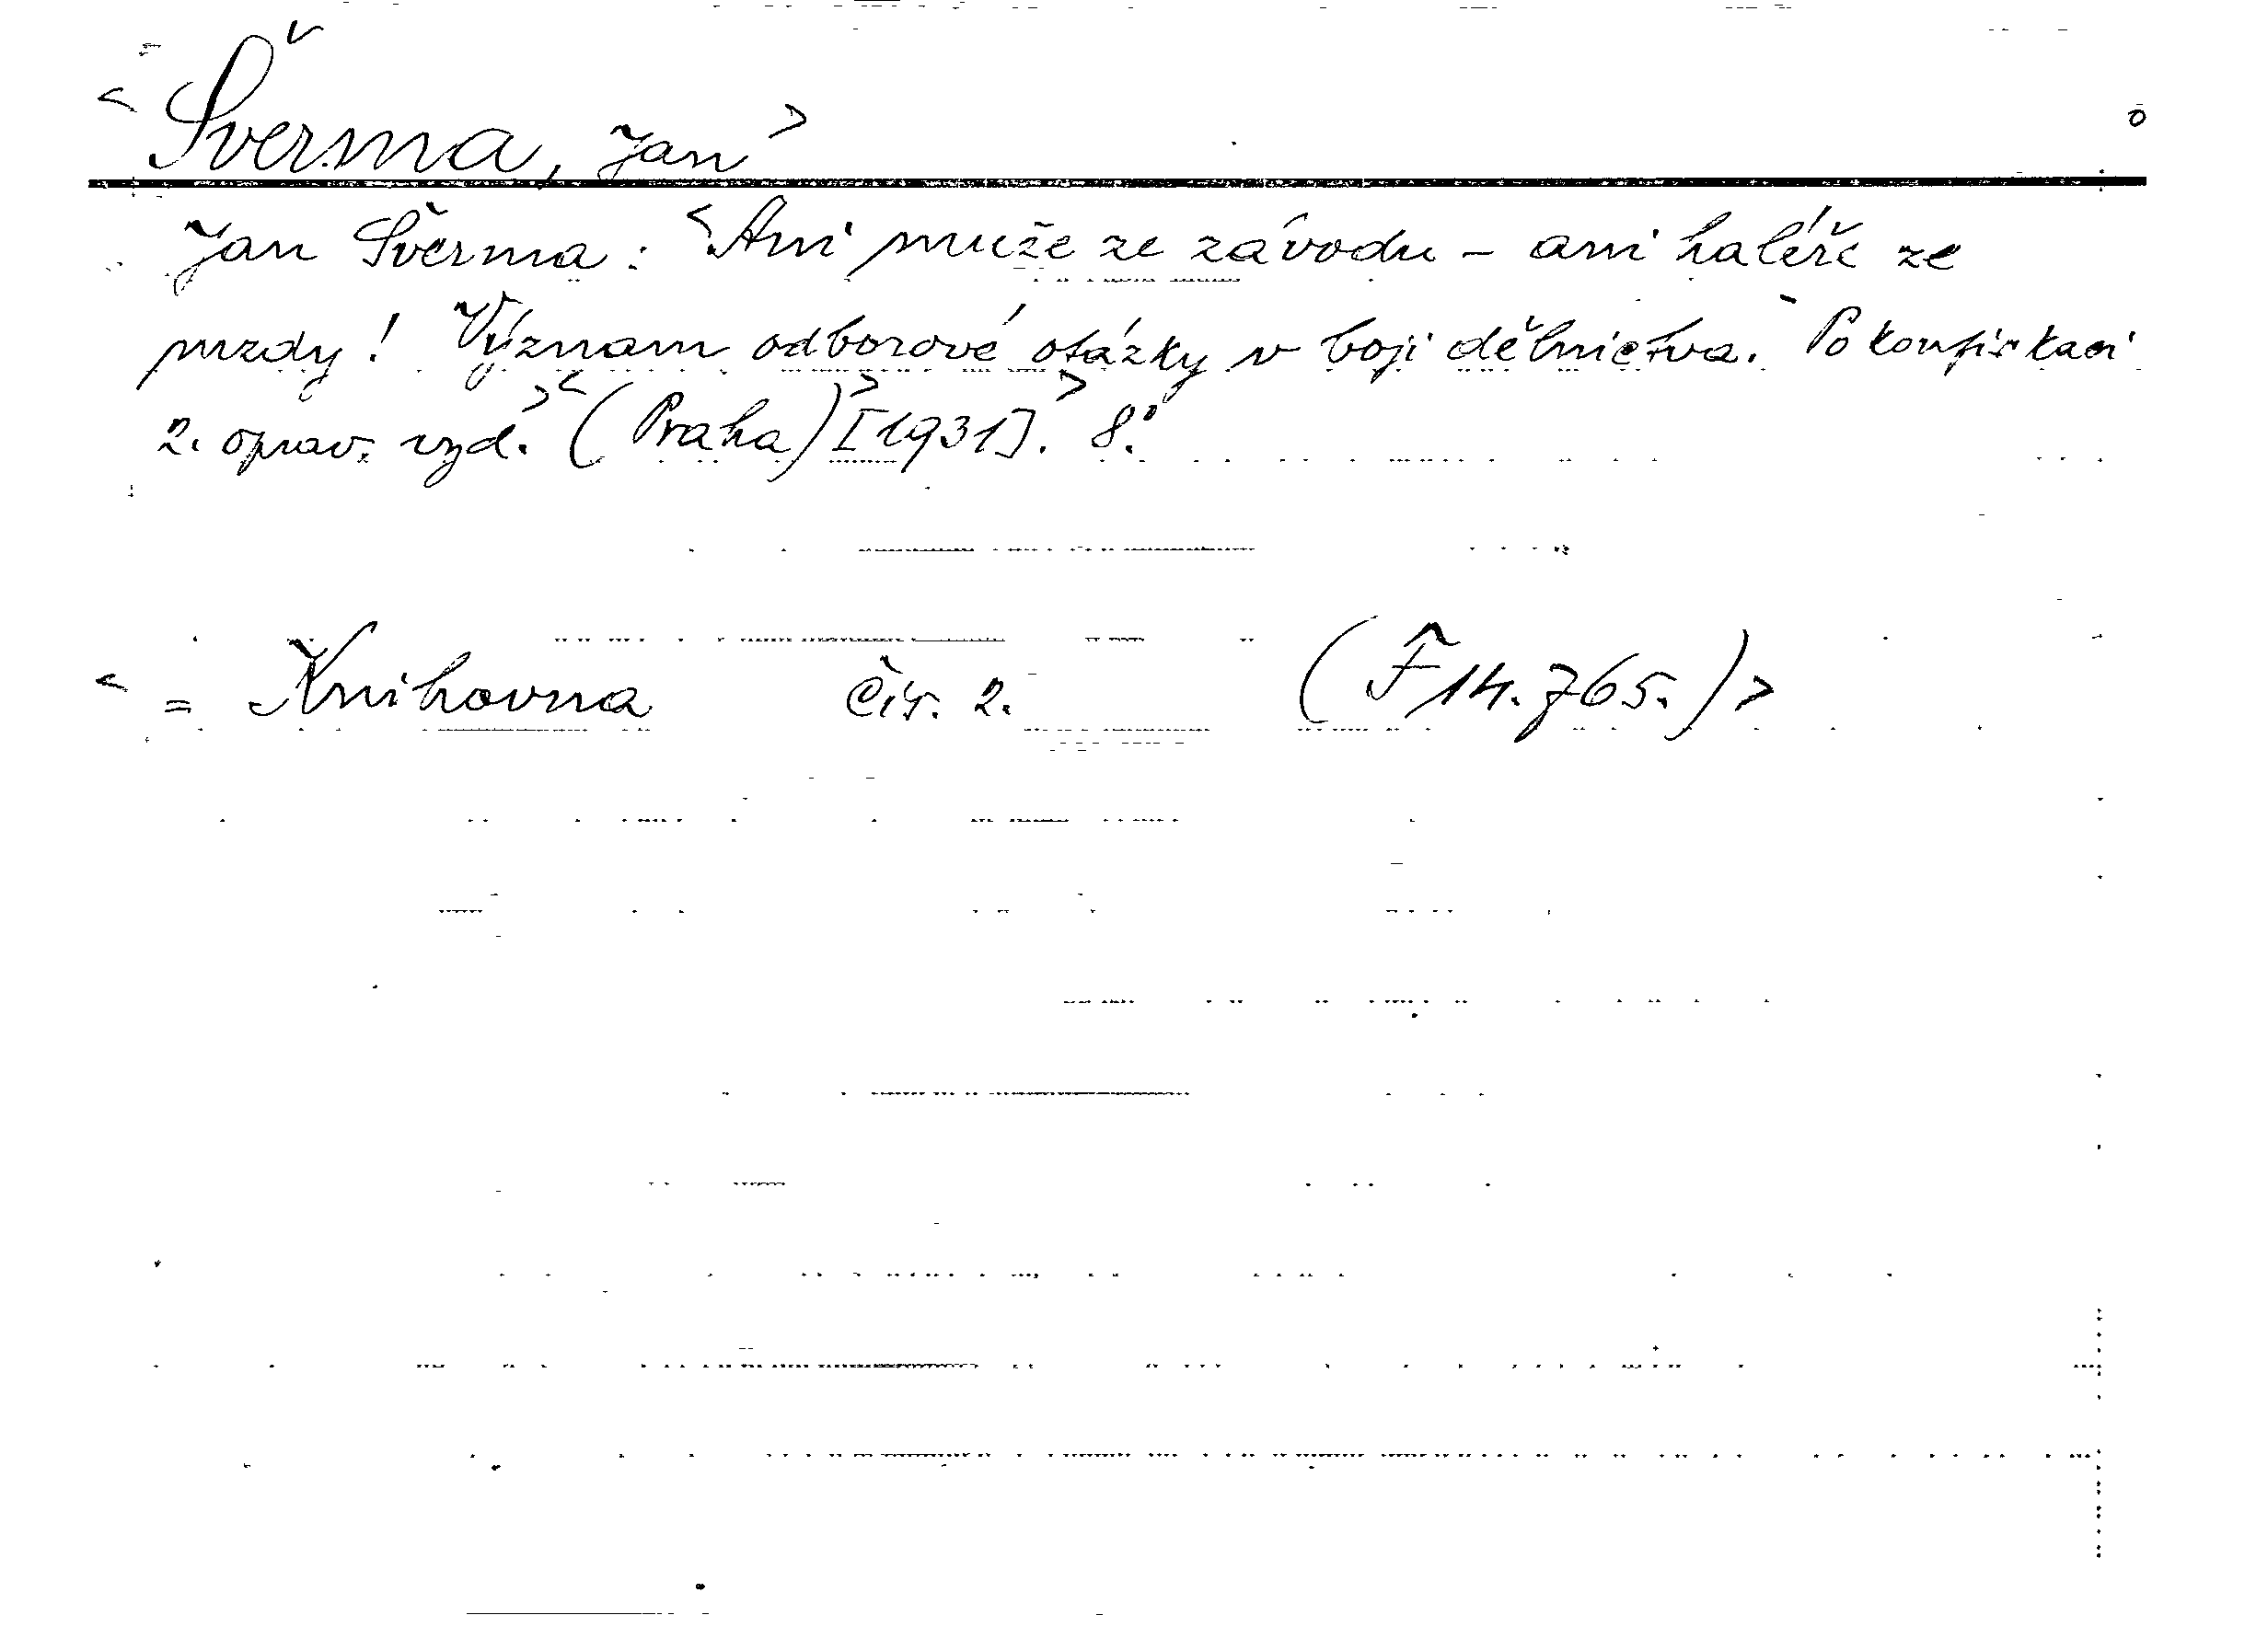 < Šverma, Jan > o
Jan Šverma: < Ani muže ze závodu - ani haléře ze
mzdy! Význam odborové otázky v boji dělnictva. Po konfiskaci
2. oprav. vyd. > < (Praha) > [1931]. > 8.°
< = Knihovna čís. 2. (F 14.765.) >